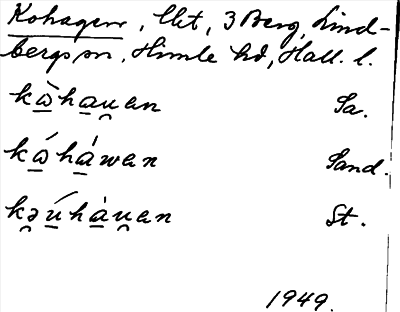 Kohagen, Ubt, 3 Berg, Lind-
bergs sn, Himle hd, Hall. l.
kɷ̀ha̲u̯an Sa.
kɷ́hàwan Sand.
kə̯úhàu̯an St.
1949.